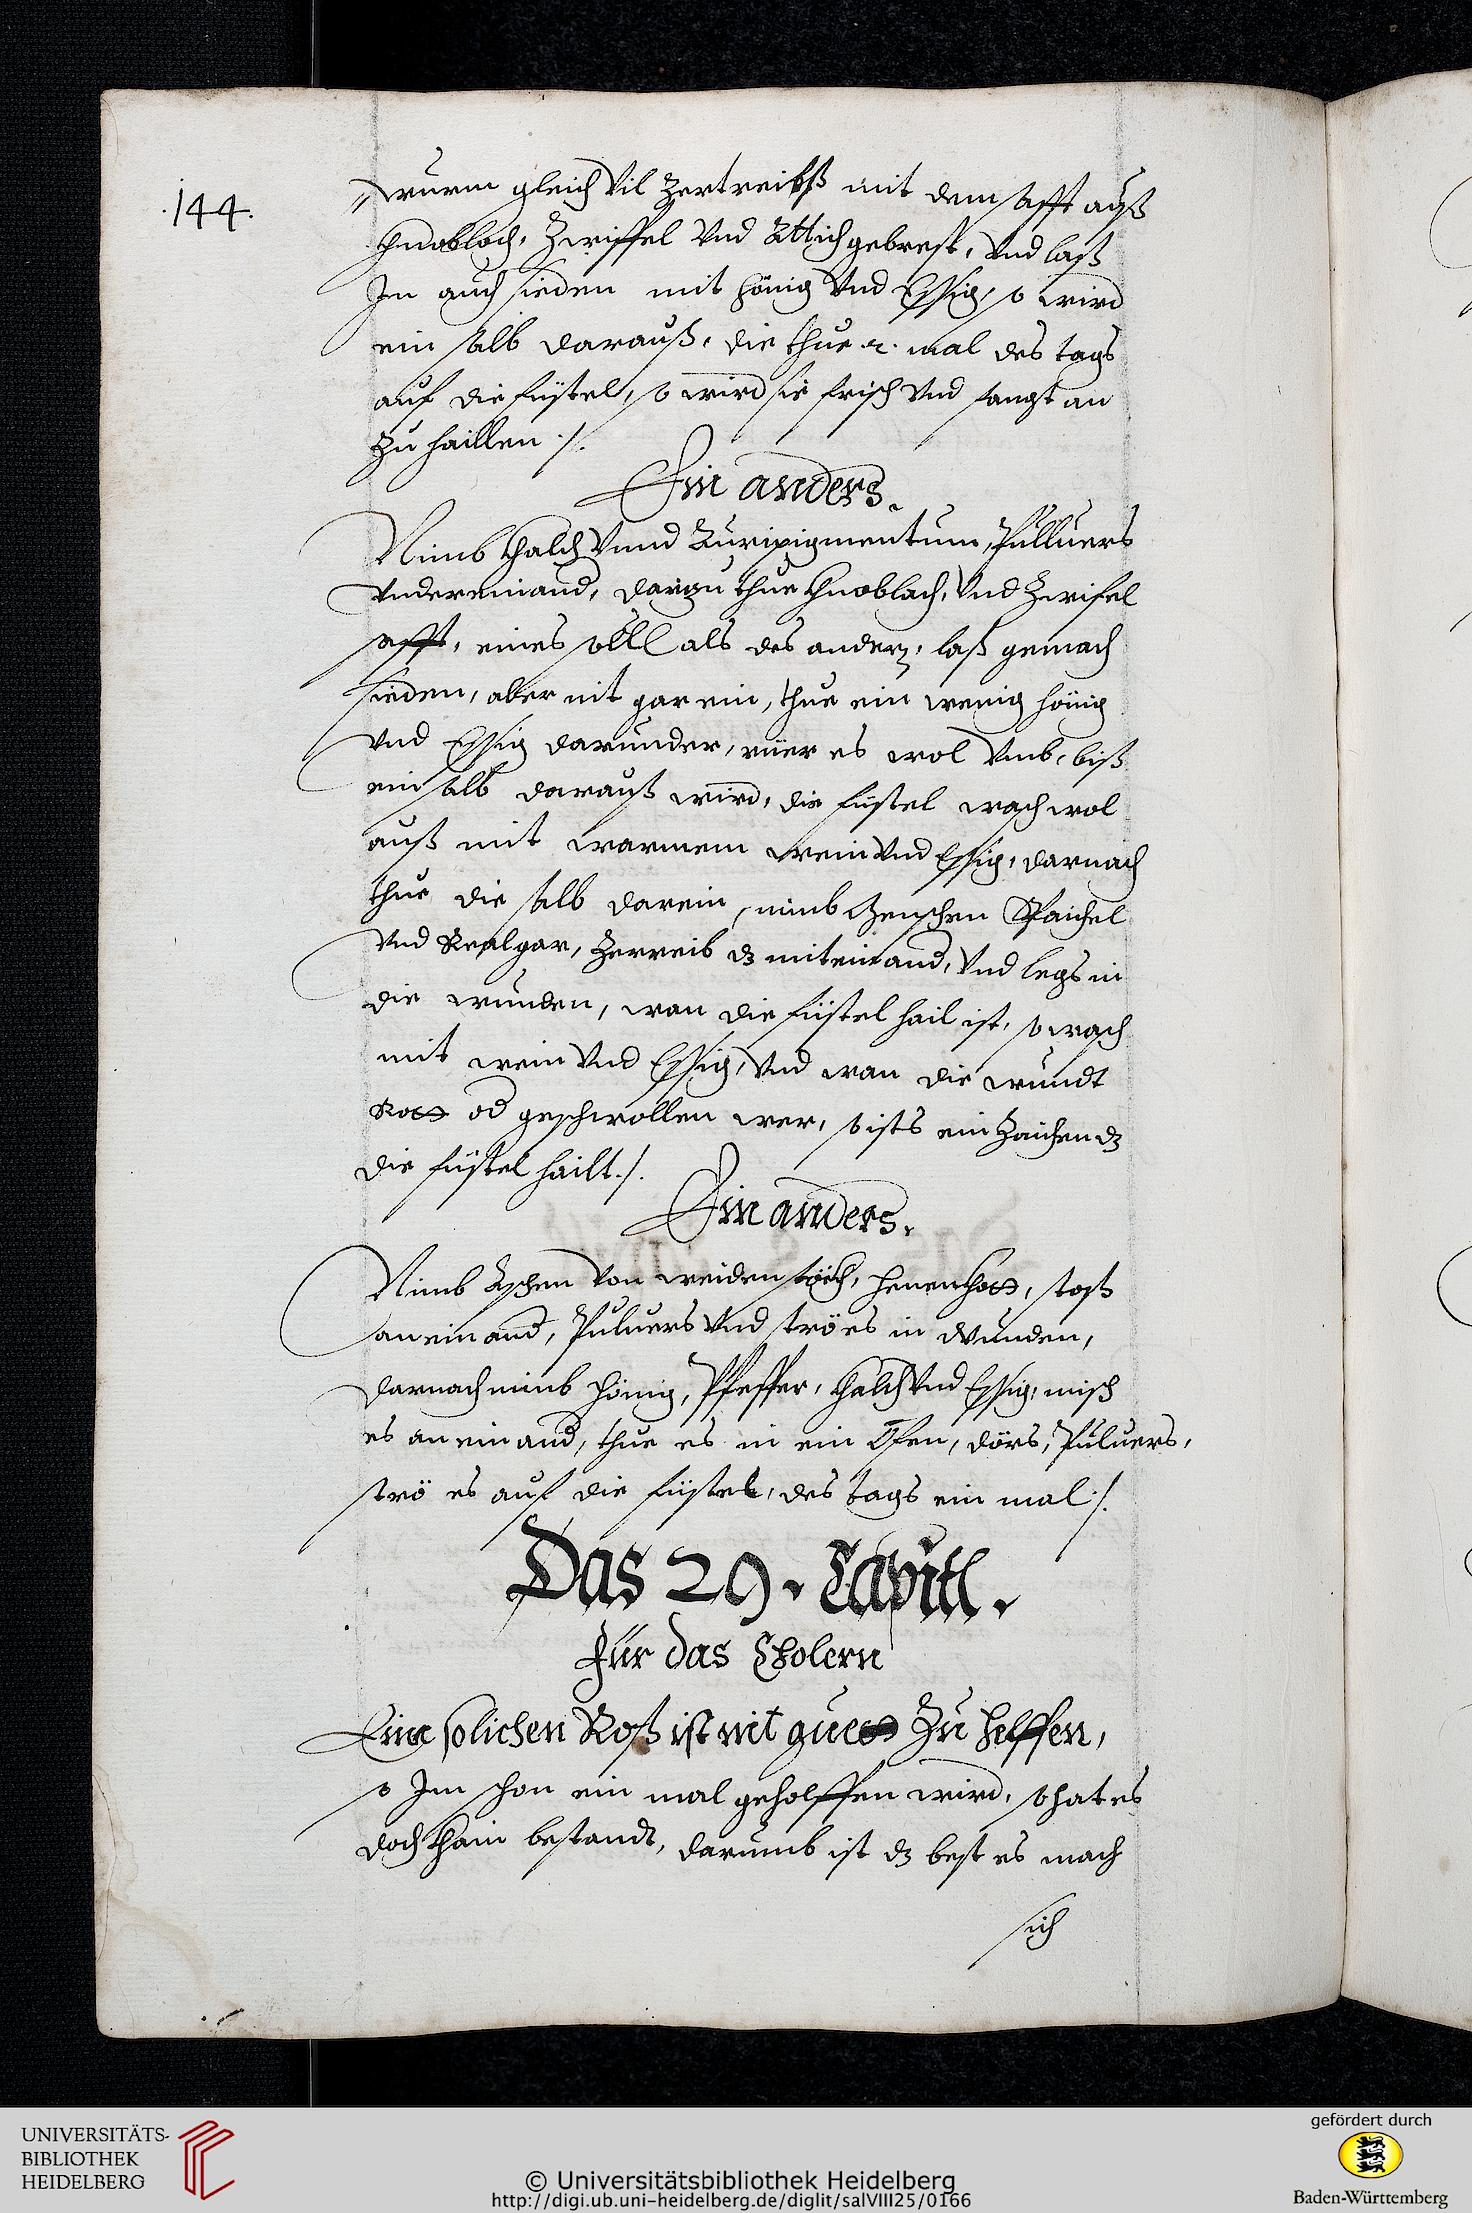 .144.
wurm gleich vil Zertreibß mit dem safft auß
Knobloch, Zwiffel vnd Attich gebrest, vnd laß
Jn auch sieden mit hönig vnd Essig, so wird
ein salb darauß, die thue .2. mal des tags
auf die füstel, so wird sie frisch vnd fangt an
zu haillen ./.
Ein anders.
Nimb Khalch vnnd Auripigmentum, Pulluers
vndereinand, darzu thue Knoblach, vnd Zwifel
safft, eines souil als des andern, laß gemach
sieden, aber nit gar ein, thue ein wenig hönig
vnd Essig darunder, rüer es wol vmb, biß
ein salb darauß wird, die füstel wasch wol
auß mit warmem wein vnd Essig, darnach
thue die salb darein, nimb Menschen Spaichel
vnd Realgar, Zerreib dz miteinand, vnd legs in
die wunden, wan die füstel hail ist, so wasch
mit wein vnd Essig, vnd wan die wundt
Rott od geschwollen wer, so ists ein Zaichen dz
die füstel hailt ./.
Ein anders.
Nimb Aschen von weidenstöckh, henenkhott, stoß
an einand, Puluers vnd strö es in wunden,
darnach nimb hönig, Pfeffer, Khalch vnd Essig, misch
es an einand, thue es in ein Ofen, dörs, Puluers,
strö es auf die füstel, des tags ein mal ./.
Das 29. Capitl.
für das Cholern
Eine solichen Roß ist nit guett Zu helffen,
so Jm schon ein mal geholffen wird, so hat es
doch khain bestandt, darumb ist dz best es mach
sich
UNIVERSITÄTS-
BIBLIOTHEK
HEIDELBERG
© Universitätsbibliothek Heidelberg
http://digi.ub.uni-heidelberg.de/diglit/salVIII25/0166
gefördert durch
Baden-Württemberg